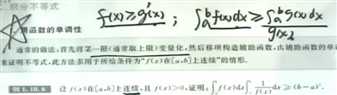 积分不等式
f(x)≥g(x) ; ∫ₐᵇf(x)dx≥∫ₐᵇg(x)dx
g(x)
用函数的单调性
通常的做法:首先将某一限(通常取上限)变量化,然后移项构造辅助函数,由辅助函数的单
来证明不等式,此方法多用于所给条件为“f(x)在[a,b]上连续”的情形.
例1.10.6 设 f(x)在[a,b]上连续,且 f(x)>0,证明:∫ₐᵇf(x)dx∫ₐᵇ1/f(x)dx≥(b-a)².